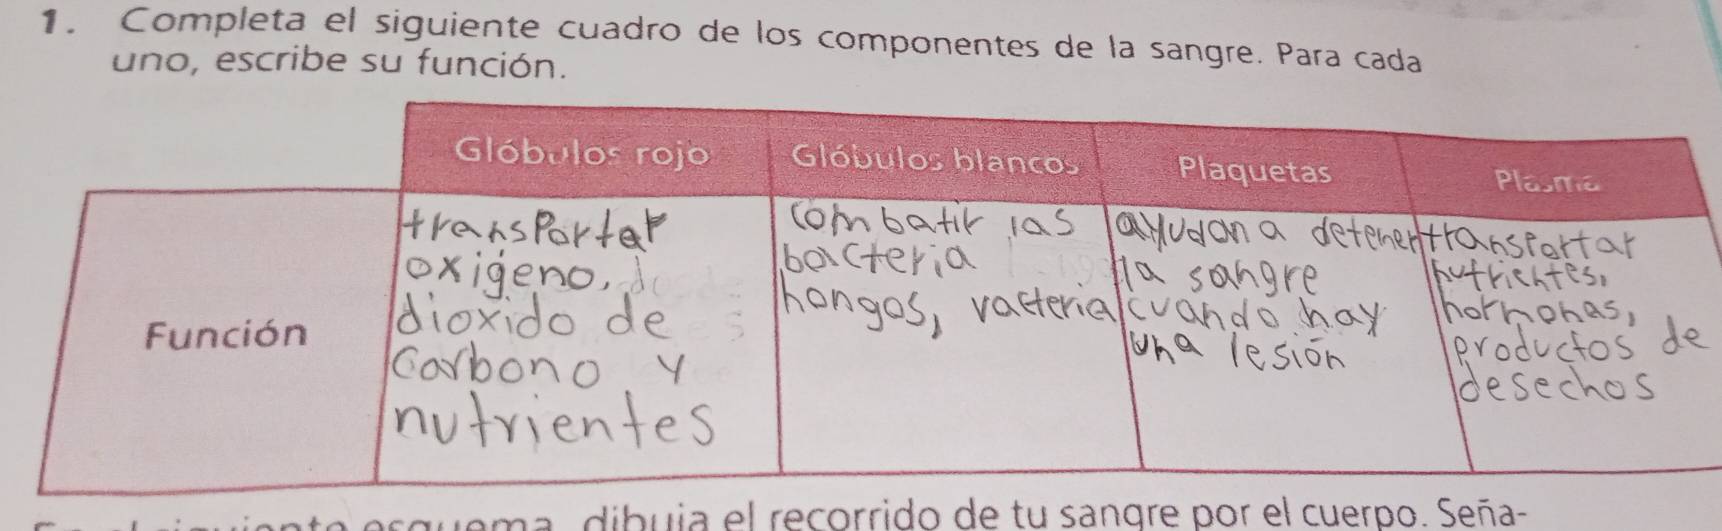 1. Completa el siguiente cuadro de los componentes de la sangre. Para cada
uno, escribe su función.
Glóbulos rojo
Glóbulos blancos
Plaquetas
Plasma
Función
transportar
oxigeno,
dioxido de
carbono y
nutrientes
combatir las
bacteria
hongos, vacteria
ayudan a detener
la sangre
cuando hay
una lesión
transportar
nutrientes,
hormonas,
productos de
desechos
esquema, dibuja el recorrido de tu sangre por el cuerpo. Seña-